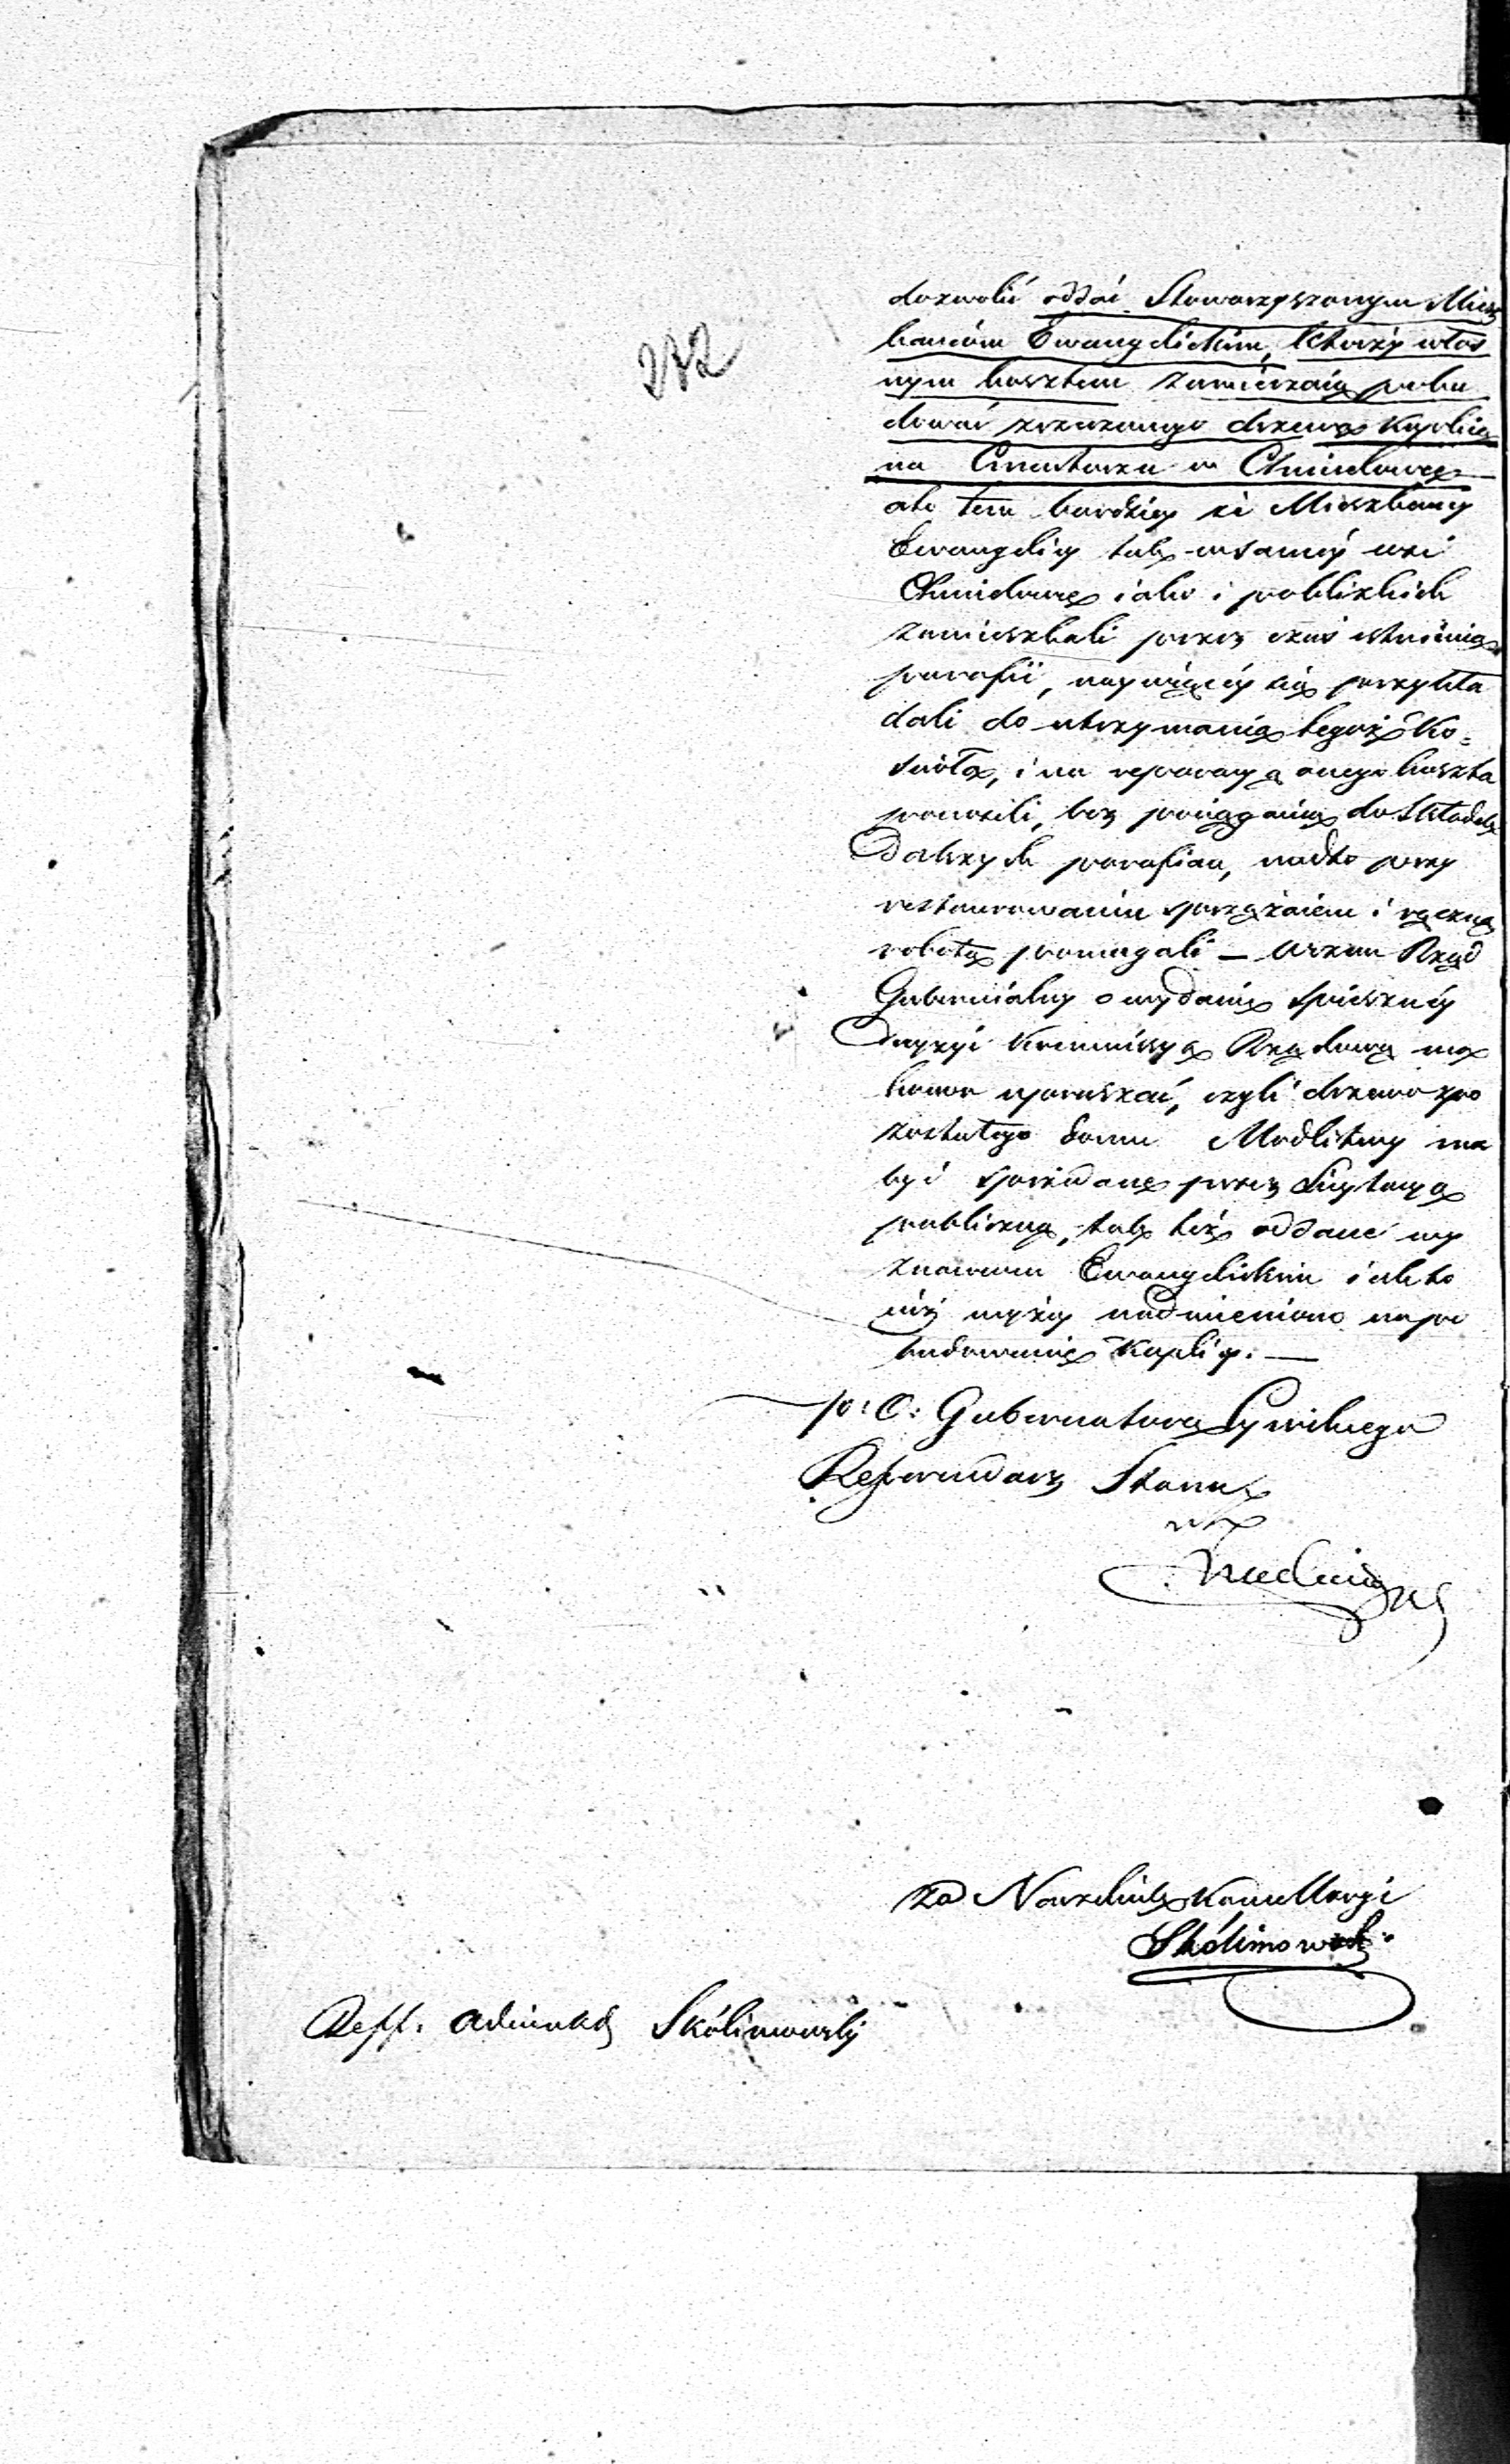 272
dozwolić oddać Stowarzyszonym Miesz
kańcom Ewangelickim, którzy włas
nym kosztem zamierzaią pobu
dować z rzeczonego drzewa Kaplicę
na Cmentarzu w Chmielowie
a to tem bardziey że Mieszkańcy
Ewangelicy tak w samey wsi
Chmielowie iako i poblizkich
zamieszkali przez czas istnienia
parafii, naywięcey się przykła
dali do utrzymania tegoż Ko=
scioła, i na reparacyą onego koszta
ponosili, bez pociągania do składek
Dalszych parafian, nadto przy
restaurowaniu sprzężaiem i ręczną
robotą pomagali — Wszem Rząd
Gubernialny o wydanie spieszney
Decyzyi Kommissyą Rządową ma
honor upraszać, czyli drzewo z po
zostałego domu Modlitwy ma
być sprzedane przez Licytacyą
publiczną, tak też oddane wy
znawcom Ewangelickim iak to
iuż wyżey nadmieniono na po
budowanie Kaplicy. —
p: O: Gubernatora Cywilnego
Referendarz Stanu
za Naczelnika Kancellaryi
Skólimowski
Reff. Adiunkt Skólimowski